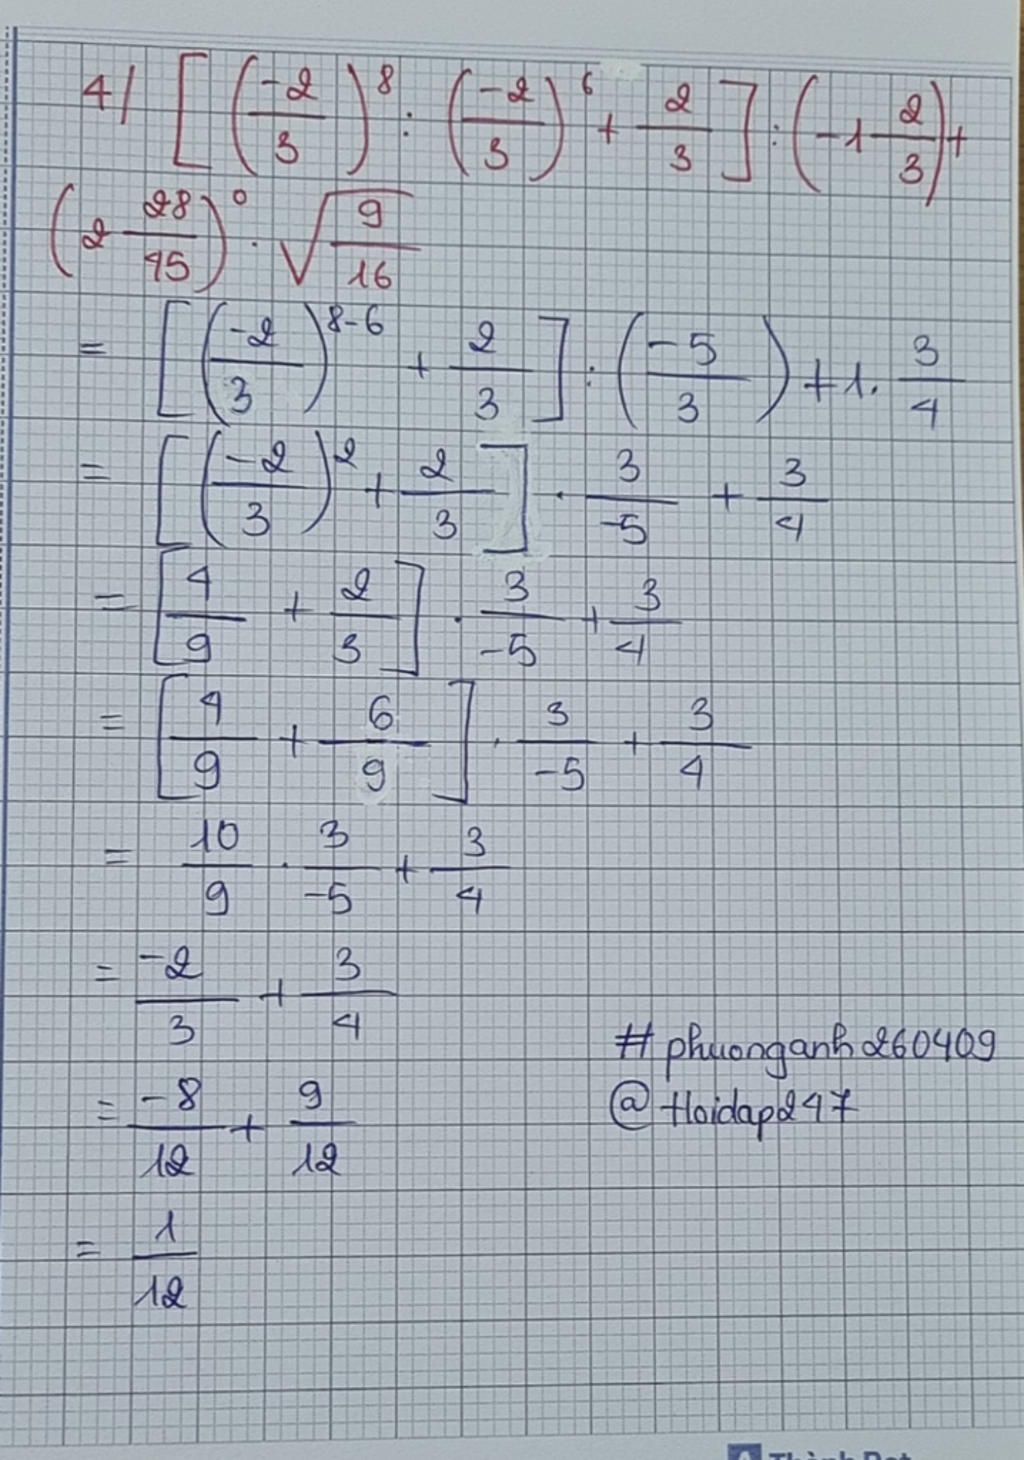 4/ [(-2/3)^8 : (-2/3)^6 + 2/3] : (-1 2/3) +
(2 28/45)^0 . √(9/16)
= [(-2/3)^(8-6) + 2/3] : (-5/3) + 1. 3/4
= [(-2/3)^2 + 2/3] . 3/-5 + 3/4
= [4/9 + 2/3] . 3/-5 + 3/4
= [4/9 + 6/9] . 3/-5 + 3/4
= 10/9 . 3/-5 + 3/4
= -2/3 + 3/4
# phuonganh260409
= -8/12 + 9/12
@ Hoidap247
= 1/12